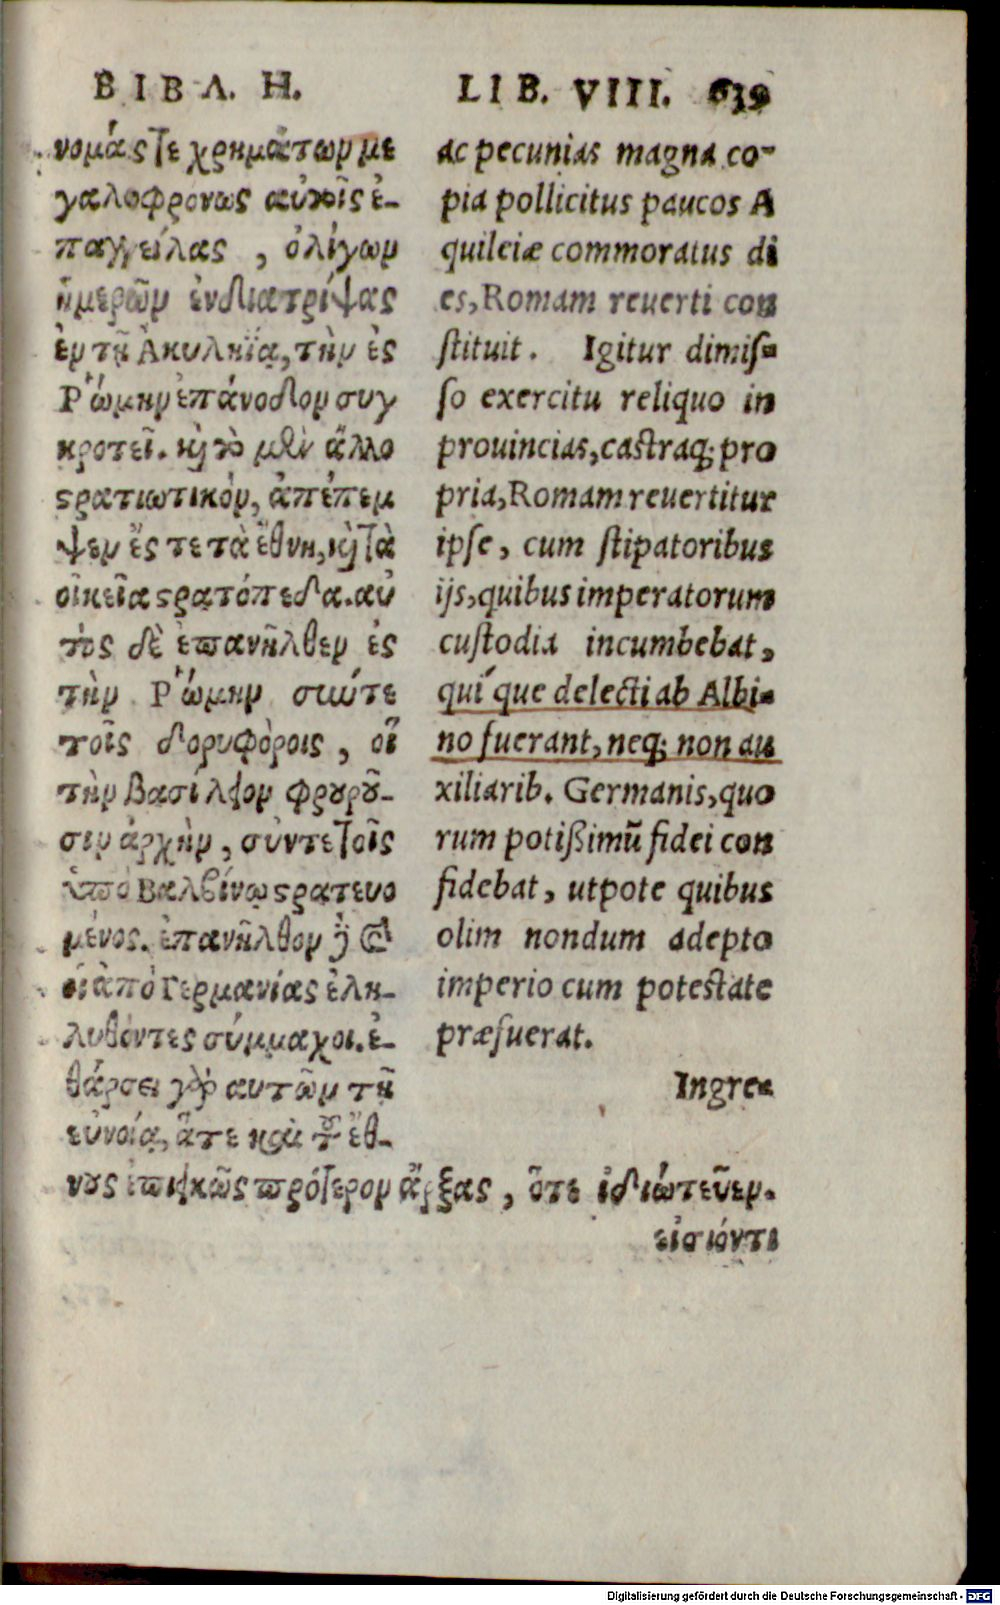 ΒΙΒΛ. Η.
νομάς τε χρημάτων με
γαλοφρόνως αὐτοῖς ἐ-
παγγείλας, ὀλίγων
ἡμερῶν ἐνδιατρίψας
ἐν τῇ Ἀκυληΐᾳ, τὴν ἐς
Ῥώμην ἐπάνοδον συγ
κροτεῖ. καὶ τὸ μὲν ἄλλο
στρατιωτικόν, ἀπέπεμ
ψεν ἔς τε τὰ ἔθνη, καὶ τὰ
οἰκεῖα στρατόπεδα. αὐ
τὸς δὲ ἐπανῆλθεν ἐς
τὴν Ῥώμην σύν τε
τοῖς δορυφόροις, οἳ
τὴν βασίλειον φρουροῦ-
σιν ἀρχὴν, σύν τε τοῖς
ὑπὸ Βαλβίνῳ στρατευο
μένοις. ἐπανῆλθον δὲ καὶ
οἱ ἀπὸ Γερμανίας ἐλη-
λυθότες σύμμαχοι. ἐ-
θάρσει γὰρ αυτῶν τῇ
εὐνοίᾳ, ἅτε καὶ τοῦ ἔθ-
νους ἐπιεικῶς πρότερον ἄρξας, ὅτε ἰδιώτευεν.
εἰσιόντι
LIB. VIII. 639
ac pecunias magna co-
pia pollicitus paucos A
quileiæ commoratus di
es, Romam reuerti con
stituit. Igitur dimis-
so exercitu reliquo in
prouincias, castraq; pro
pria, Romam reuertitur
ipse, cum stipatoribus
ijs, quibus imperatorum
custodia incumbebat,
quí que delecti ab Albi-
no fuerant, neq; non au
xiliarib. Germanis, quo
rum potißimũ fidei con
fidebat, utpote quibus
olim nondum adepto
imperio cum potestate
præfuerat.
Ingre-
Digitalisierung gefördert durch die Deutsche Forschungsgemeinschaft - DFG